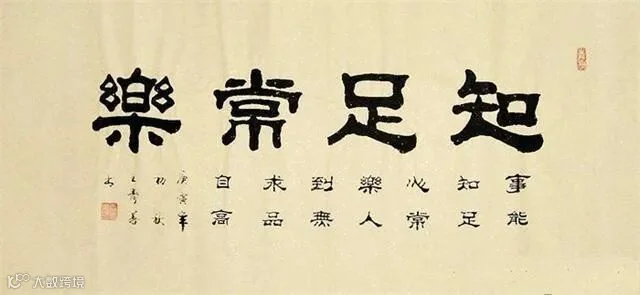 知足常樂
事能
知足
心常
樂人
到無
求品
自高
庚寅年
初秋
大数跨境